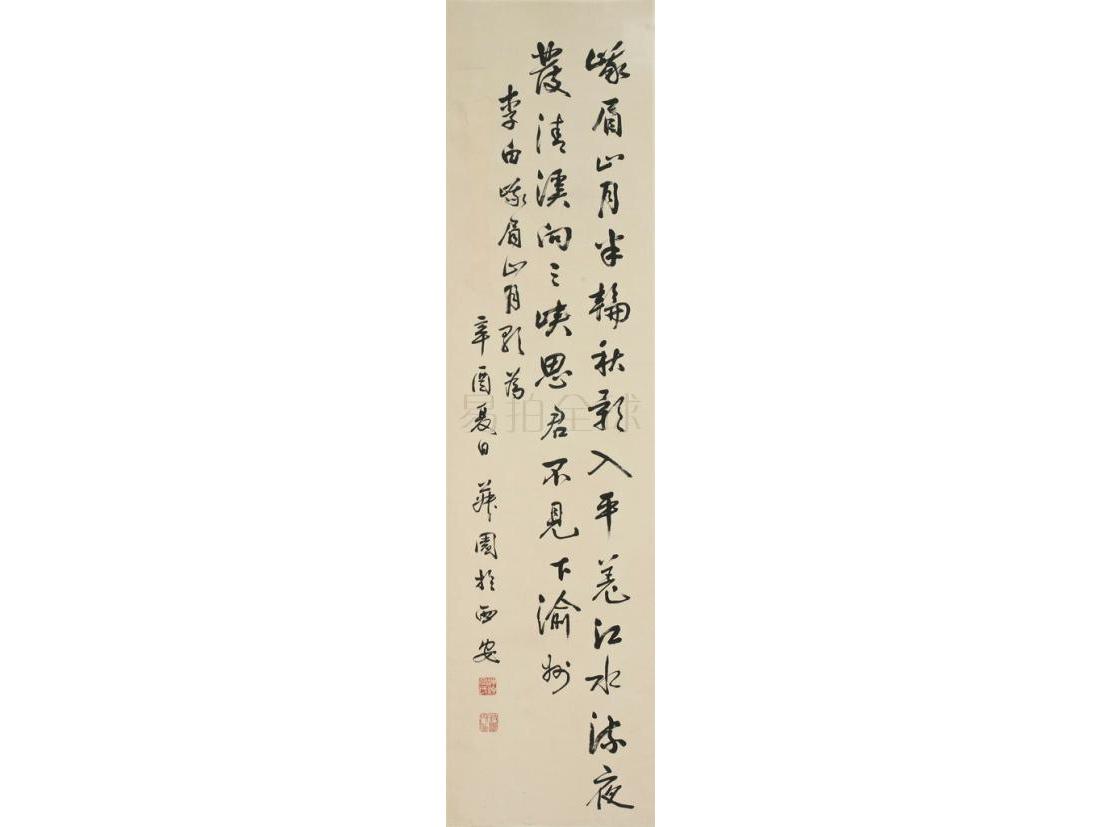 峨眉山月半輪秋影入平羌江水流夜
發清溪向三峽思君不見下渝州
李白峨眉山月歌為
辛酉夏日 園於西安
易拍全球